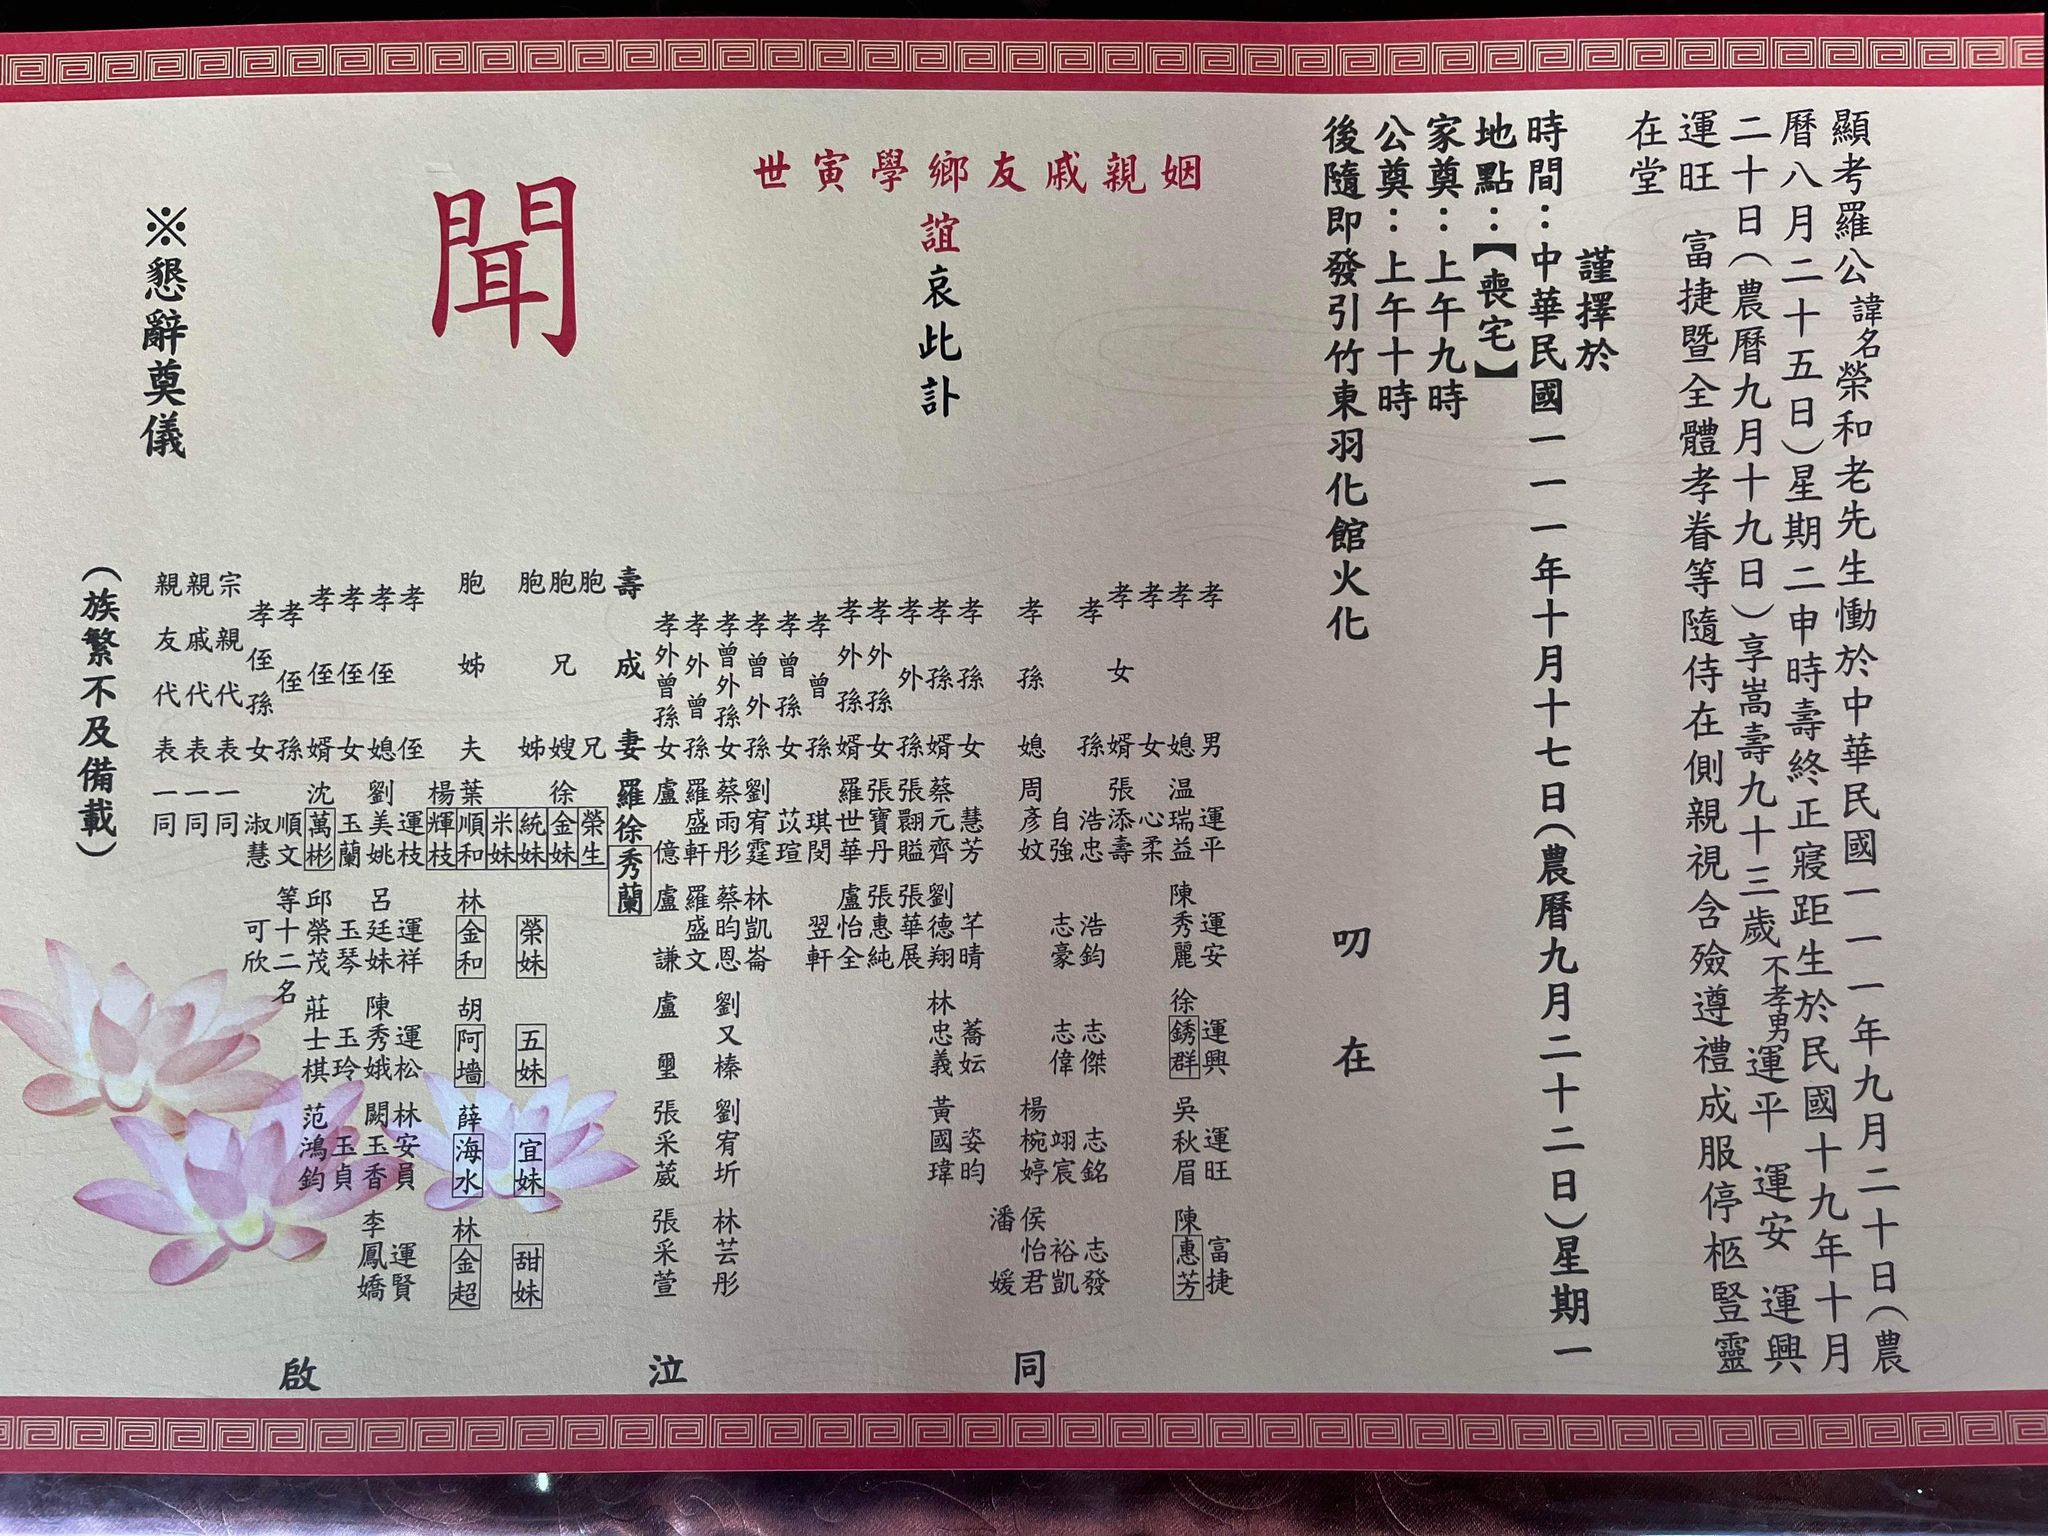 顯考羅公諱名榮和老先生慟於中華民國一一一年九月二十日(農
曆八月二十五日)星期二申時壽終正寢距生於民國十九年十月
二十日(農曆九月十九日)享嵩壽九十三歲不孝男運平 運安 運興
運旺 富捷暨全體孝眷等隨侍在側親視含殮遵禮成服停柩豎靈
在堂
謹擇於
時間:中華民國一一一年十月十七日(農曆九月二十二日)星期一
地點:【喪宅】
家奠:上午九時
公奠:上午十時
後隨即發引竹東羽化館火化
叨在
姻親戚友鄉學寅世
誼哀此訃
聞
孝男 運平 運安 運興 運旺 富捷
孝媳 温瑞益 陳秀麗 徐銹群 吳秋眉 陳惠芳
孝女 心柔
孝女婿 張添壽
孝孫 浩忠 浩鈞 志傑 志銘 志發
自強 志豪 志偉 翊宸 裕凱
孝孫媳 周彥妏 楊椀婷 侯怡君
潘媛
孝孫女 慧芳 芊晴 蕎妘 姿昀
孝孫婿 蔡元齊 劉德翔 林忠義 黃國瑋
孝外孫 張翾賹 張華展
孝外孫女 張寶丹 張惠純
孝外孫婿 羅世華 盧怡全
孝曾孫 琪閔 翌軒
孝曾孫女 苡瑄
孝曾外孫 劉宥霆 林凱崙
孝曾外孫女 蔡雨彤 蔡昀恩 劉又榛 劉宥圻 林芸彤
孝外曾孫 羅盛軒 羅盛文
孝外曾孫女 盧億 盧謙 盧璽 張采葳 張采萱
壽成妻 羅徐秀蘭
胞兄 榮生
胞兄嫂 徐金妹
胞姊 統妹 榮妹 五妹 宜妹 甜妹
米妹
胞姊夫 葉順和 林金和 胡阿墻 薛海水 林金超
楊輝枝
孝侄 運枝 運祥 運松 林安員 運賢
孝侄媳 劉美姚 呂廷妹 陳秀娥 闕玉香 李鳳嬌
孝侄女 玉蘭 玉琴 玉玲 玉貞
孝侄婿 沈萬彬 邱榮茂 莊士棋 范鴻鈞
孝侄孫 順文 等十二名
孝侄孫女 淑慧 可欣
宗親代表一同
親戚代表一同
親友代表一同
(族繁不及備載)
同泣啟
※懇辭奠儀